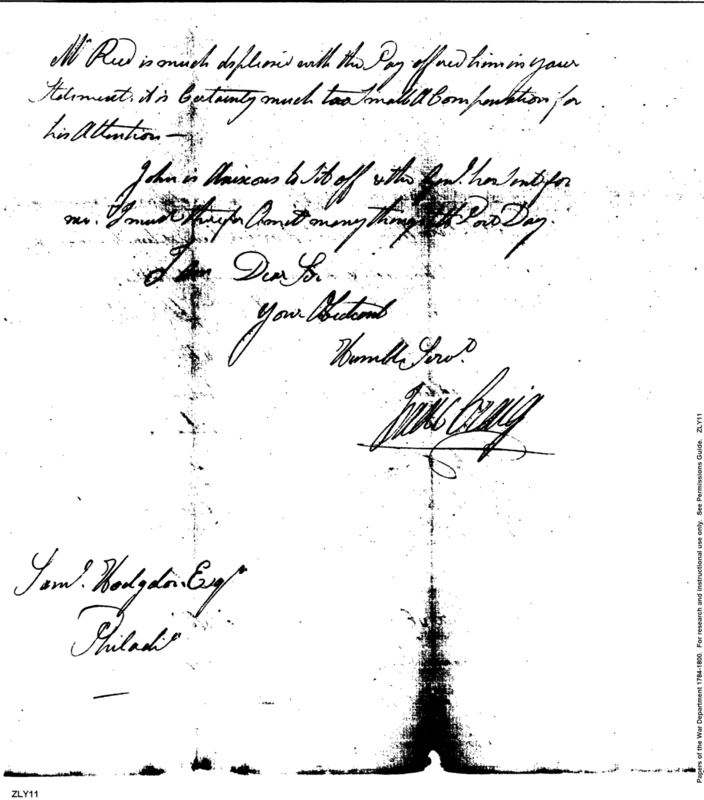 Mr Reed is much displeased with the Pay offered him in your
Statement, it is Certainly much too Small A Compensation for
his Attention —
John is Anixous to Set off & the Genl. has Sent for
me. I must therefor Omit many things till Post Day.
I am Dear Sir
Your Obedient
Humble Servt.
Isaac Craig
Saml. Hodgdon Esqr
Philadia
Papers of the War Department 1784-1800. For research and instructional use only. See Permissions Guide. ZLY11
ZLY11